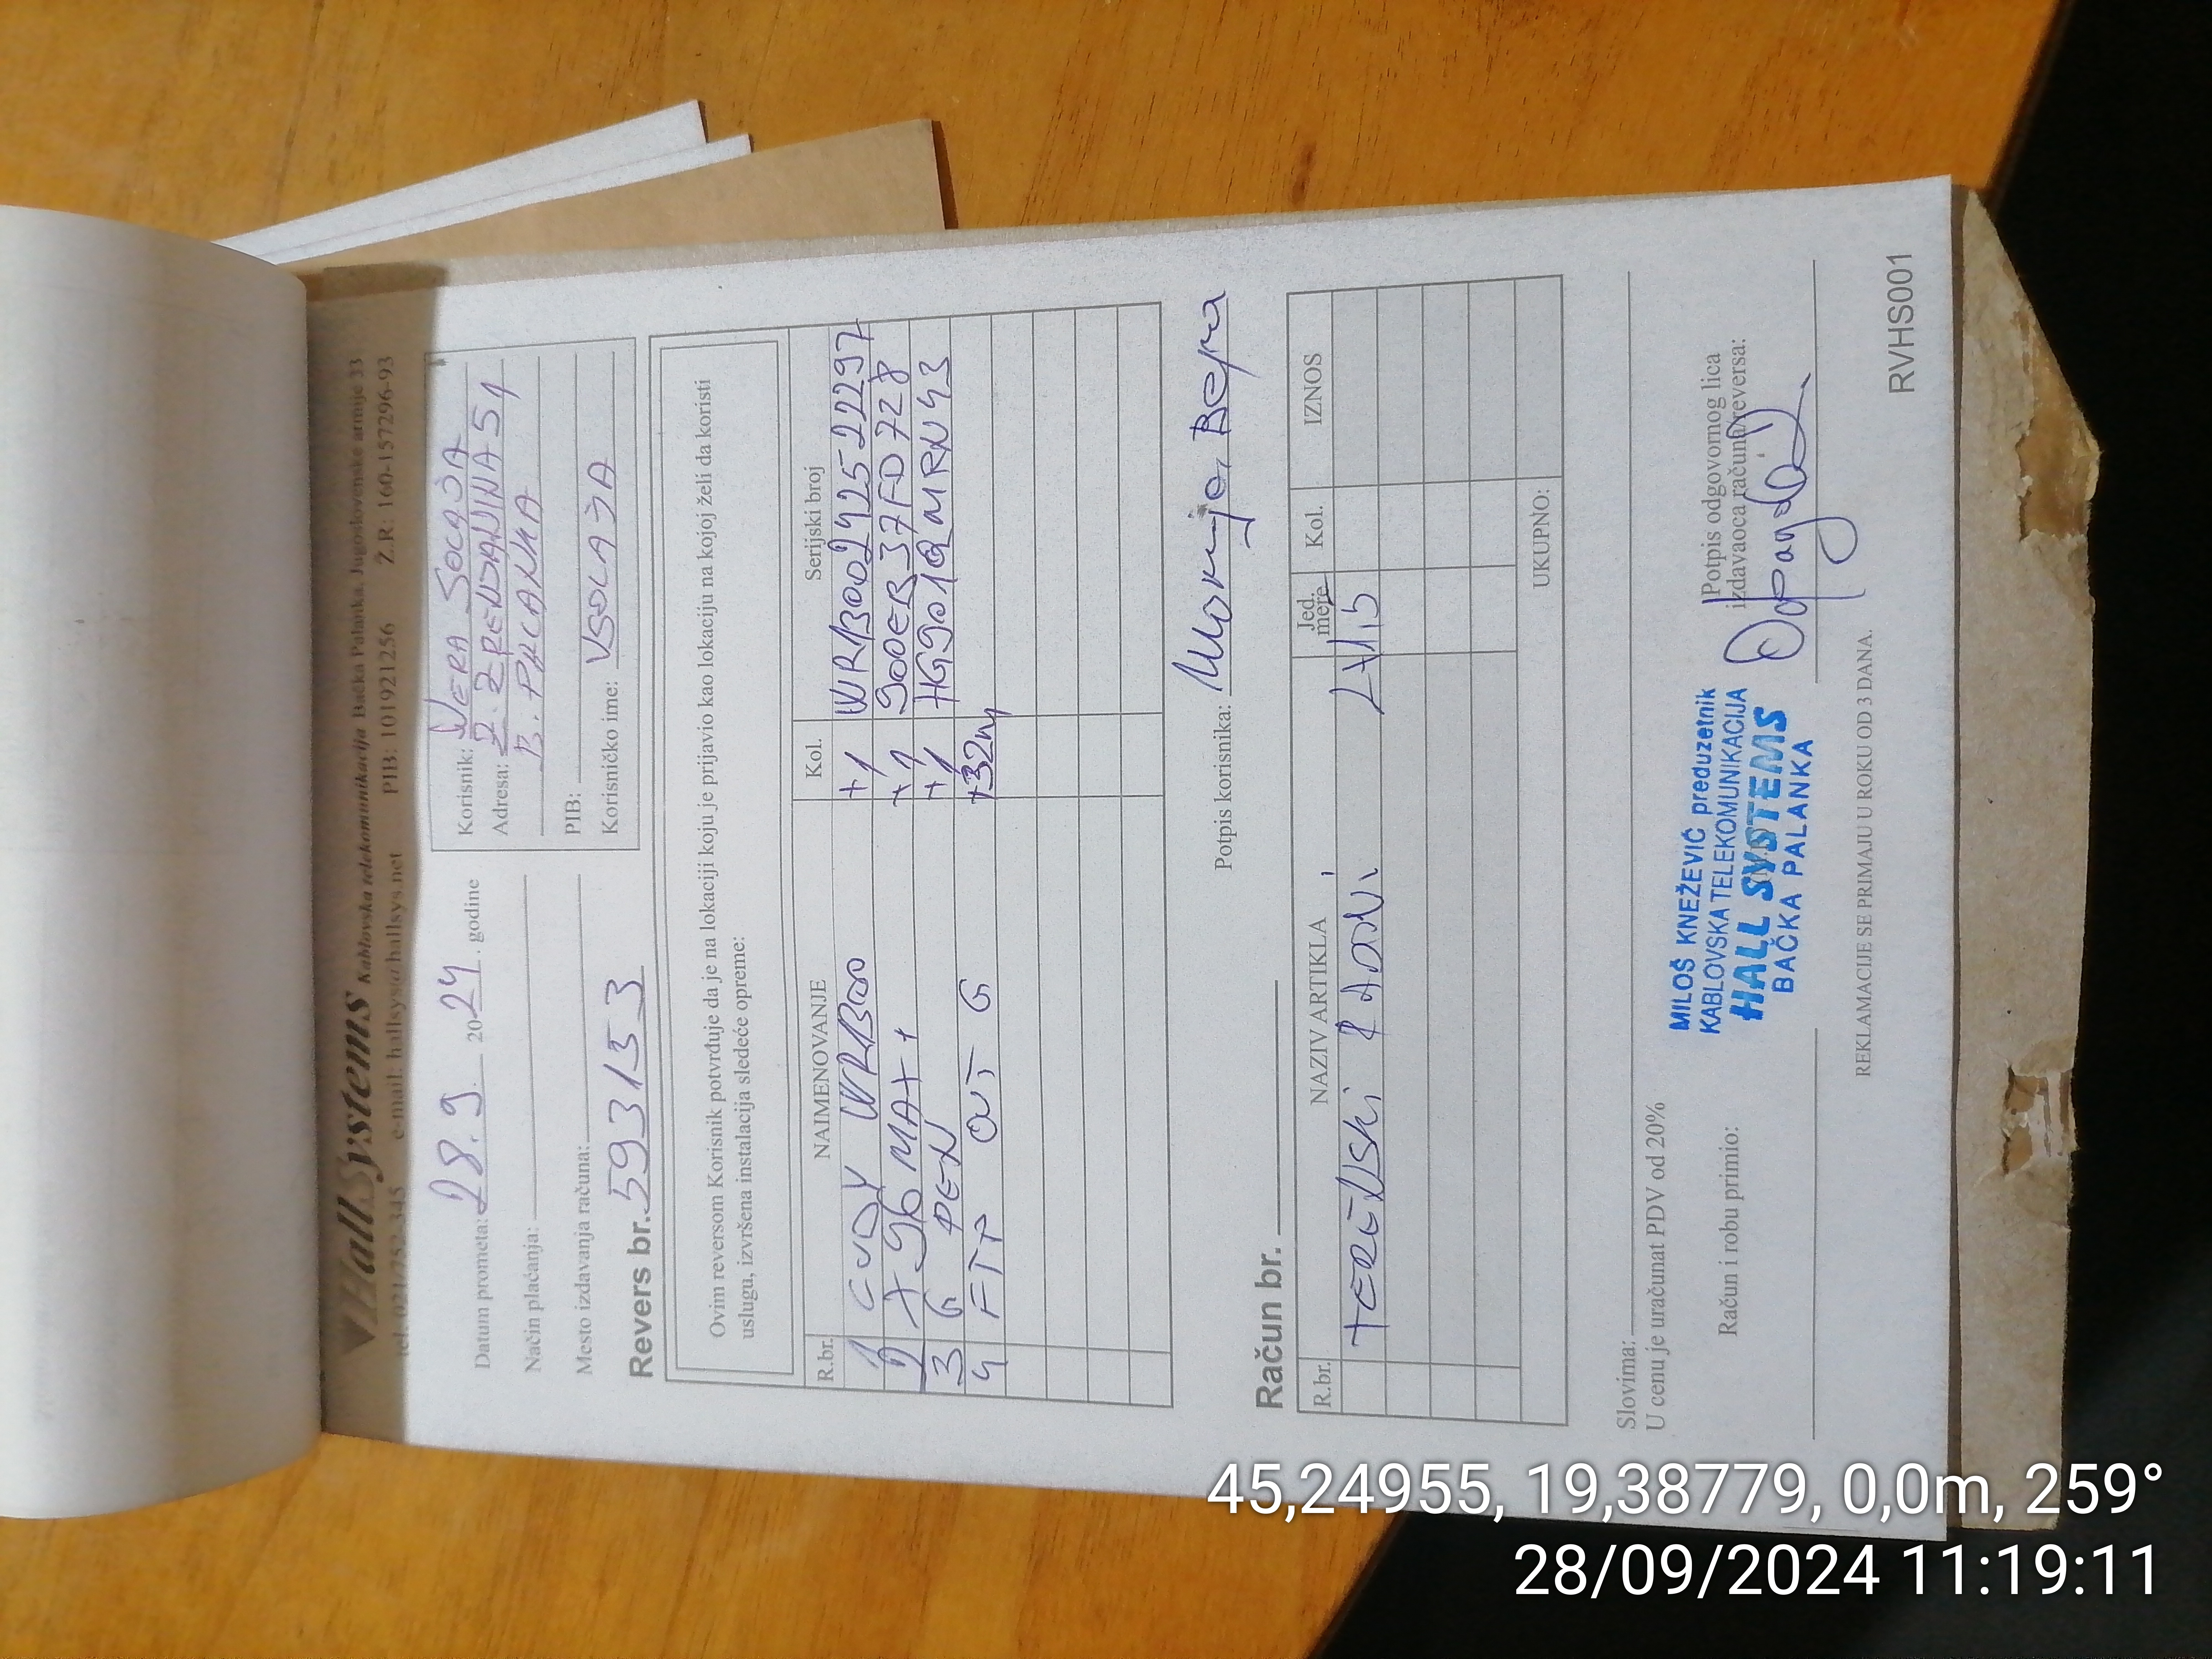 HallSystems Kablovska telekomunikacija Bačka Palanka, Jugoslovenske armije 33
tel: 021/752-345 e-mail: hallsys@hallsys.net PIB: 101921256 Ž.R: 160-157296-93
Datum prometa: 28.9. 2024. godine
Način plaćanja:
Mesto izdavanja računa:
Revers br. 593153
Korisnik: VERA
Adresa: Ž. ZRENJANINA 51
B. PALANKA
PIB:
Korisničko ime:
Ovim reversom Korisnik potvrđuje da je na lokaciji koju je prijavio kao lokaciju na kojoj želi da koristi
uslugu, izvršena instalacija sledeće opreme:
R.br. NAIMENOVANJE Kol. Serijski broj
1 CUDY WR1300 +1 WR13002425222297
2 X96 MAX+ +1 900EB37FD728
3 G PEN +1
4 FTP OUT G +32m
Potpis korisnika:
Račun br.
R.br. NAZIV ARTIKLA Jed. mere Kol. IZNOS
TERENSKI RADNI
UKUPNO:
Slovima:
U cenu je uračunat PDV od 20%
Račun i robu primio:
MILOŠ KNEŽEVIĆ preduzetnik
KABLOVSKA TELEKOMUNIKACIJA
HALL SYSTEMS
BAČKA PALANKA
Potpis odgovornog lica
izdavaoca računa/reversa:
REKLAMACIJE SE PRIMAJU U ROKU OD 3 DANA.
RVHS001
45,24955, 19,38779, 0,0m, 259°
28/09/2024 11:19:11